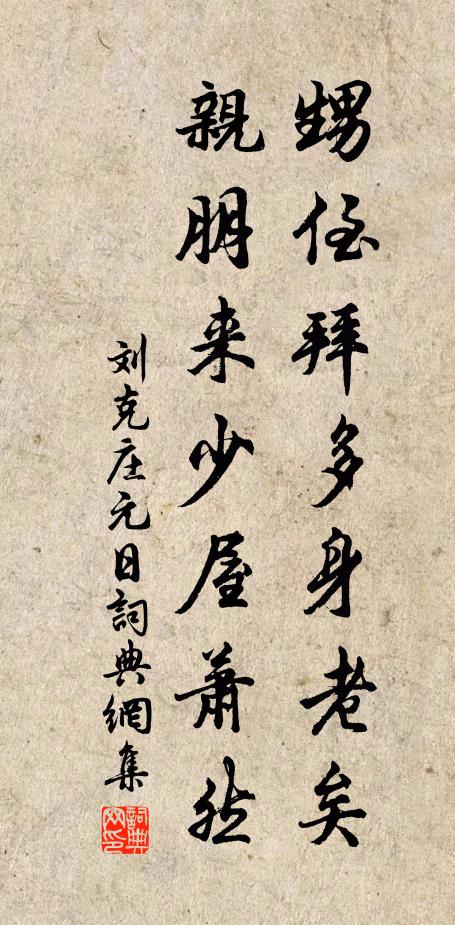 甥侄拜多身老矣
親朋来少屋蕭然
刘克庄元日詞典網集
詞典网印